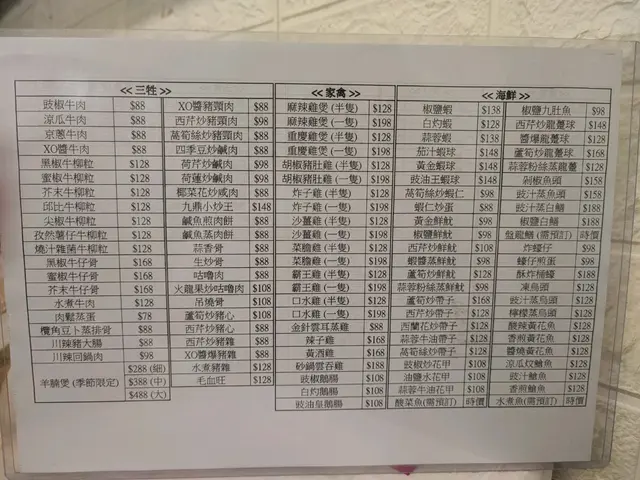 << 三牲 >>
豉椒牛肉 $88
涼瓜牛肉 $88
京蔥牛肉 $88
XO醬牛肉 $88
黑椒牛柳粒 $128
蜜椒牛柳粒 $128
芥末牛柳粒 $128
邱比牛柳粒 $128
尖椒牛柳粒 $128
孜然薯仔牛柳粒 $128
燒汁雜菌牛柳粒 $128
黑椒牛仔骨 $168
蜜椒牛仔骨 $168
芥末牛仔骨 $168
水煮牛肉 $128
肉鬆蒸蛋 $78
欖角豆卜蒸排骨 $88
川辣豬大腸 $88
川辣回鍋肉 $98
羊腩煲 (季節限定) $288 (細)
$388 (中)
$488 (大)
XO醬豬頸肉 $88
西芹炒豬頸肉 $98
萵筍絲炒豬頸肉 $88
四季豆炒鹹肉 $88
荷芹炒鹹肉 $98
荷蓮炒鹹肉 $98
椰菜花炒咸肉 $88
九鼎小炒王 $148
鹹魚煎肉餅 $88
鹹魚蒸肉餅 $88
蒜香骨 $88
生炒骨 $88
咕嚕肉 $88
火龍果炒咕嚕肉 $108
吊燒骨 $108
蘆筍炒豬心 $108
西芹炒豬心 $88
西芹炒豬雜 $88
XO醬爆豬雜 $88
水煮豬雜 $128
毛血旺 $128
<< 家禽 >>
麻辣雞煲 (半隻) $128
麻辣雞煲 (一隻) $198
重慶雞煲 (半隻) $128
重慶雞煲 (一隻) $198
胡椒豬肚雞 (半隻) $128
胡椒豬肚雞 (一隻) $198
炸子雞 (半隻) $128
炸子雞 (一隻) $198
沙薑雞 (半隻) $128
沙薑雞 (一隻) $198
菜膽雞 (半隻) $128
菜膽雞 (一隻) $198
霸王雞 (半隻) $128
霸王雞 (一隻) $198
口水雞 (半隻) $128
口水雞 (一隻) $198
金針雲耳蒸雞 $88
辣子雞 $168
黃酒雞 $168
砂鍋雲吞雞 $188
豉椒鵝腸 $108
白灼鵝腸 $108
豉油皇鵝腸 $108
<< 海鮮 >>
椒鹽蝦 $138
白灼蝦 $128
蒜蓉蝦 $138
茄汁蝦球 $148
黃金蝦球 $148
豉油王蝦球 $148
萵筍絲炒蝦仁 $98
蝦仁炒蛋 $88
黃金鮮魷 $98
椒鹽鮮魷 $98
西芹炒鮮魷 $108
蝦醬蒸鮮魷 $98
蘆筍炒鮮魷 $128
蒜蓉粉絲蒸鮮魷 $98
蘆筍炒帶子 $168
西芹炒帶子 $128
西蘭花炒帶子 $128
蒜蓉牛油帶子 $128
萵筍絲炒帶子 $128
豉椒炒花甲 $108
油鹽水花甲 $108
蒜蓉牛油花甲 $108
酸菜魚(需預訂) 時價
椒鹽九肚魚 $98
西芹炒龍躉球 $148
醬爆龍躉球 $128
蘆筍炒龍躉球 $168
蒜蓉粉絲蒸龍躉 $128
剁椒魚頭 $158
豉汁蒸魚頭 $158
豉汁蒸白鱔 $188
椒鹽白鱔 $188
盤龍鱔 (需預訂) 時價
炸蠔仔 $98
蠔仔煎蛋 $98
酥炸桶蠔 $188
凍烏頭 $128
豉汁蒸烏頭 $128
檸檬蒸烏頭 $128
酸辣黃花魚 $128
香煎黃花魚 $128
醬燒黃花魚 $128
涼瓜炆鯧魚 $128
豉汁鯧魚 $128
香煎鯧魚 $128
水煮魚(需預訂) 時價